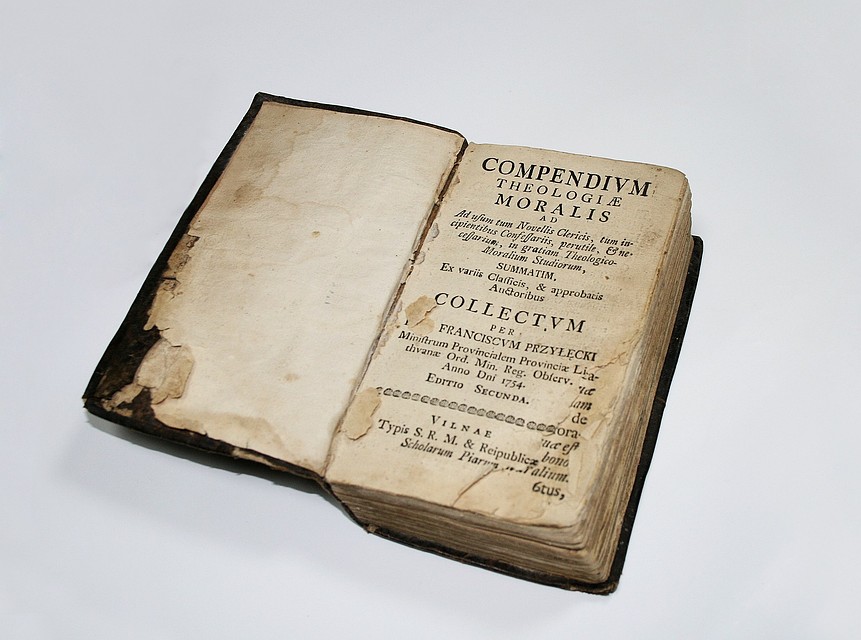 COMPENDIVM
THEOLOGIÆ
MORALIS
AD
Ad uſum tum Novellis Clericis, tum in-
cipientibus Confeſſariis, perutile, & ne-
ceſſarium, in gratiam Theologico-
Moralium Studiorum,
SUMMATIM,
Ex variis Claſſicis, & approbatis
Auctoribus
COLLECTVM
PER:
FRANCISCVM PRZYŁĘCKI
Miniſtrum Provincialem Provinciæ Li-
thvanæ Ord. Min. Reg. Obſerv.
Anno Dni 1754.
EDITIO SECUNDA.
VILNAE
Typis S. R. M. & Reipublicæ
Scholarum Piarum
de
ora-
bono